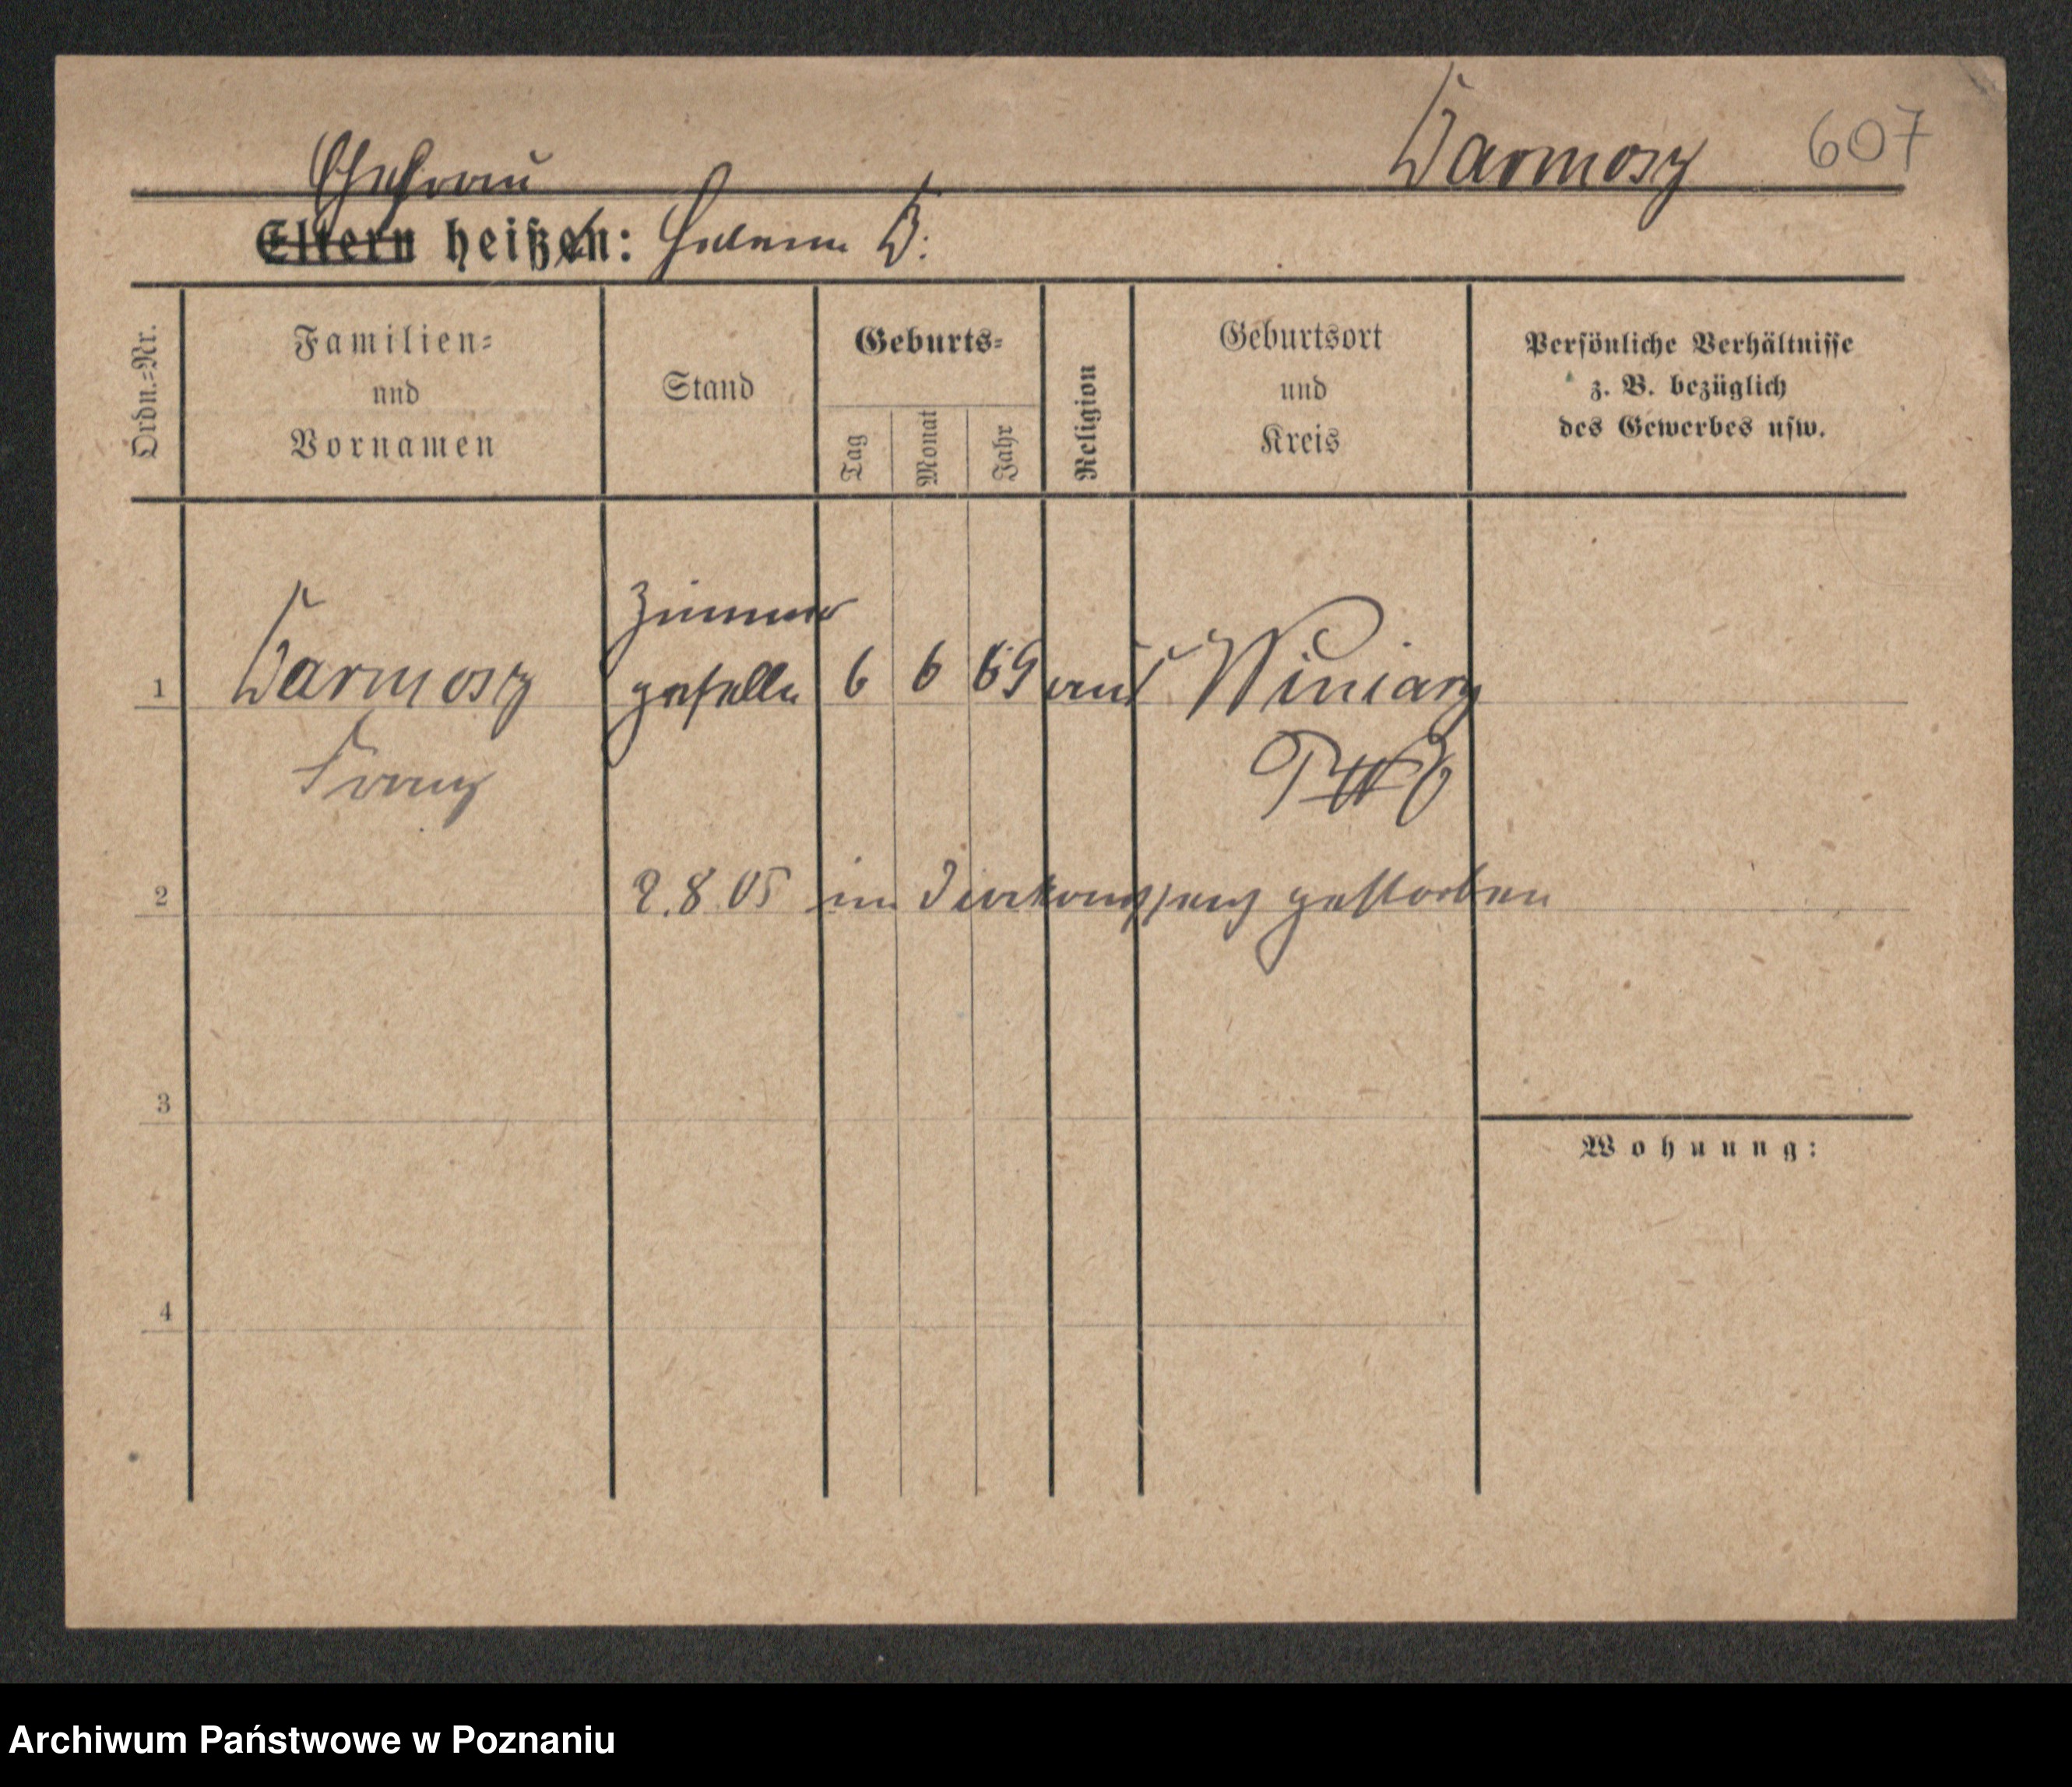 Darmosz 607
Ehefrau
Eltern heißen: Helena D.
Ordn.=Nr.
Familien=
und
Vornamen
Stand
Geburts=
Tag
Monat
Jahr
Religion
Geburtsort
und
Kreis
Persönliche Verhältnisse
z. B. bezüglich
des Gewerbes usw.
1 Darmosz Zimmer
geselle 6 6 69 Winiary
Franz
2 2.8.05 im gestorben
3
Wohnung:
4
Archiwum Państwowe w Poznaniu